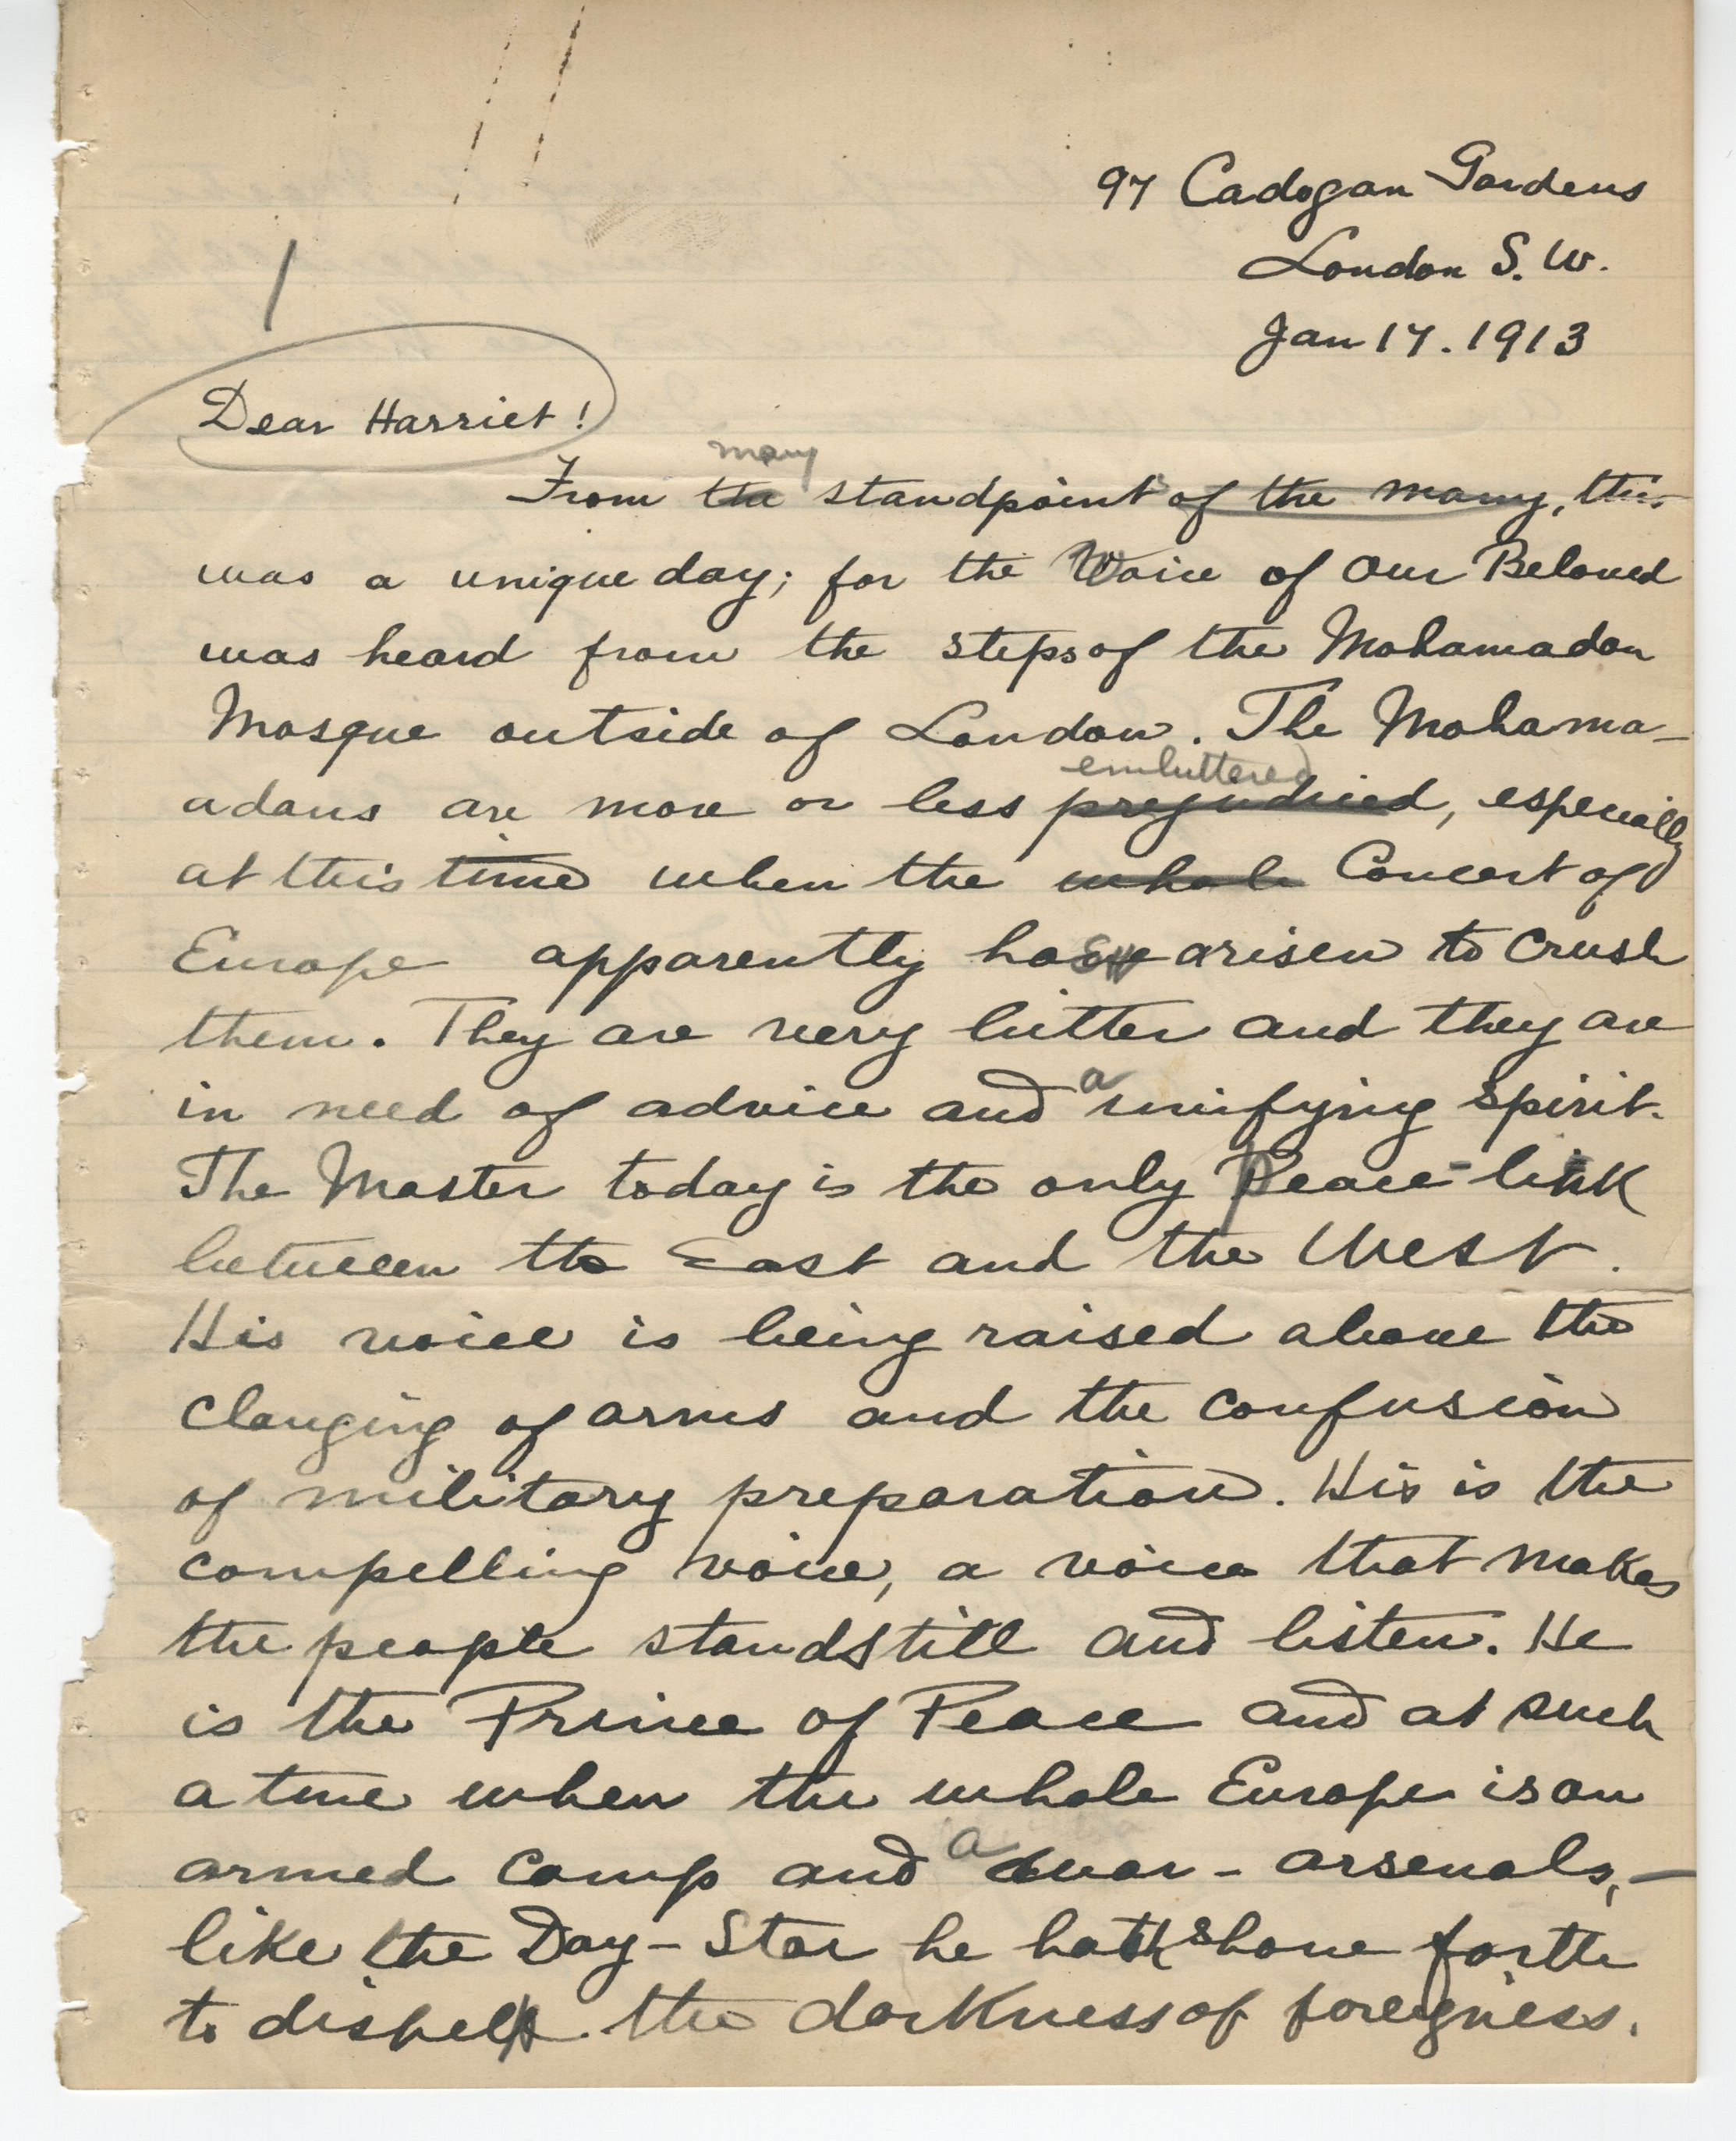 97 Cadogan Gardens
London S. W.
Jan 17. 1913
1
Dear Harriet!
many
From the standpoint of the many, this
was a unique day; for the Voice of Our Beloved
was heard from the steps of the Mohamadan
Mosque outside of London. The Mohama-
embittered
adans are more or less prejudiced, especially
at this time when the whole Concert of
Europe apparently has arisen to crush
them. They are very bitter and they are
a
in need of advice and unifying spirit.
The Master today is the only peace-link
between the East and the West.
His voice is being raised above the
clanging of arms and the confusion
of military preparation. His is the
compelling voice, a voice that makes
the people stand still and listen. He
is the Prince of Peace and at such
a time when the whole Europe is an
a
armed camp and war-arsenals,-
like the Day-Star he hath shone forth
to dispel the darkness of foreigness.